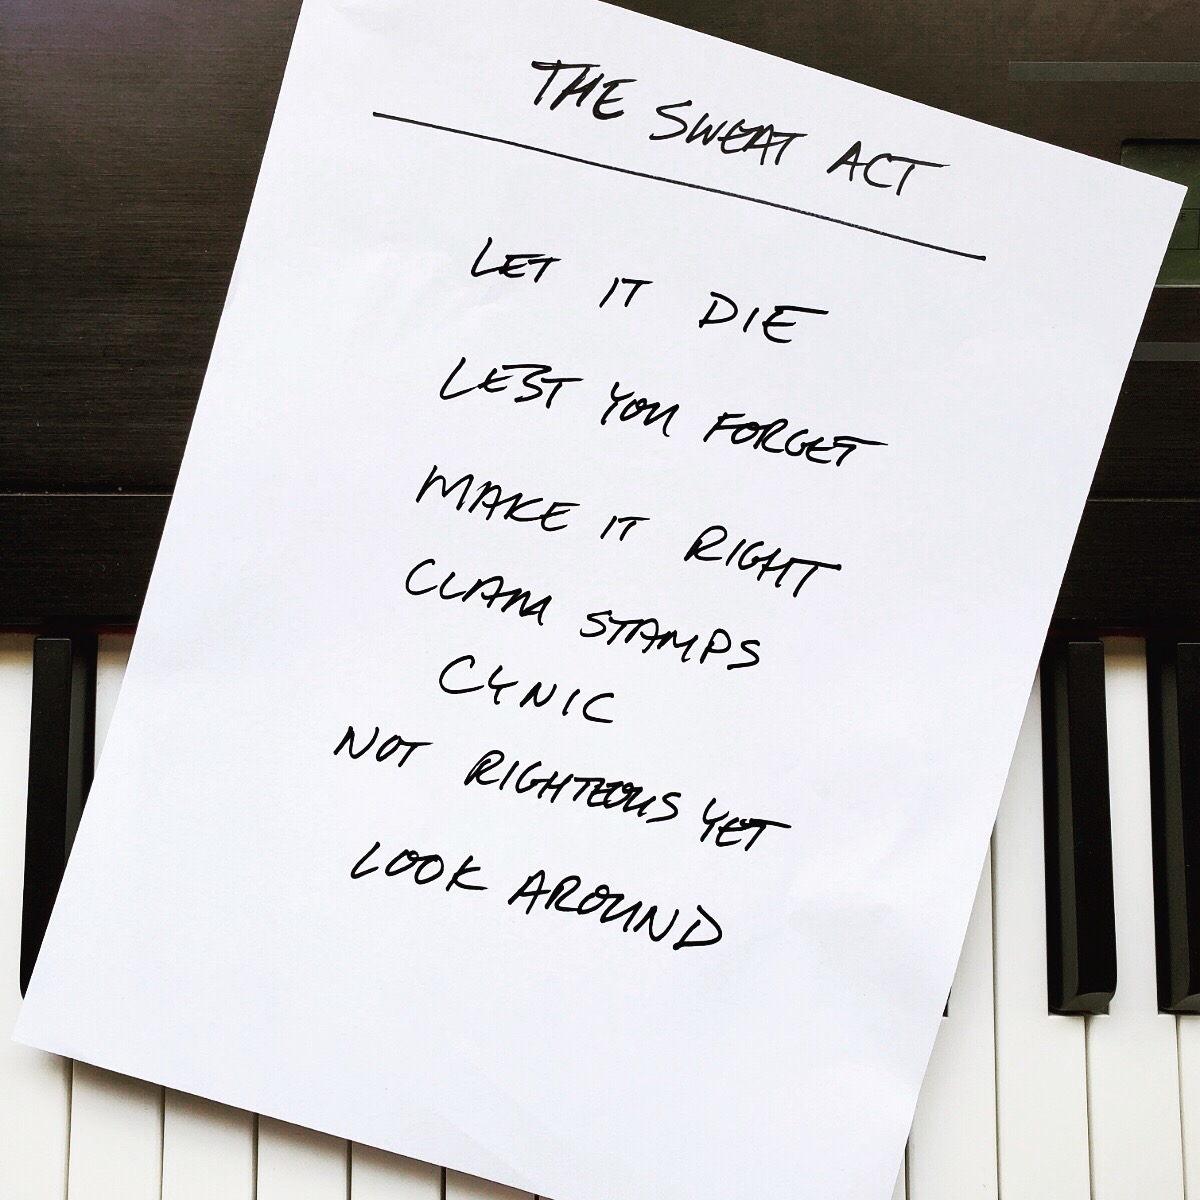 THE SWEAT ACT
LET IT DIE
LEST YOU FORGET
MAKE IT RIGHT
CLAM STAMPS
CYNIC
NOT RIGHTEOUS YET
LOOK AROUND